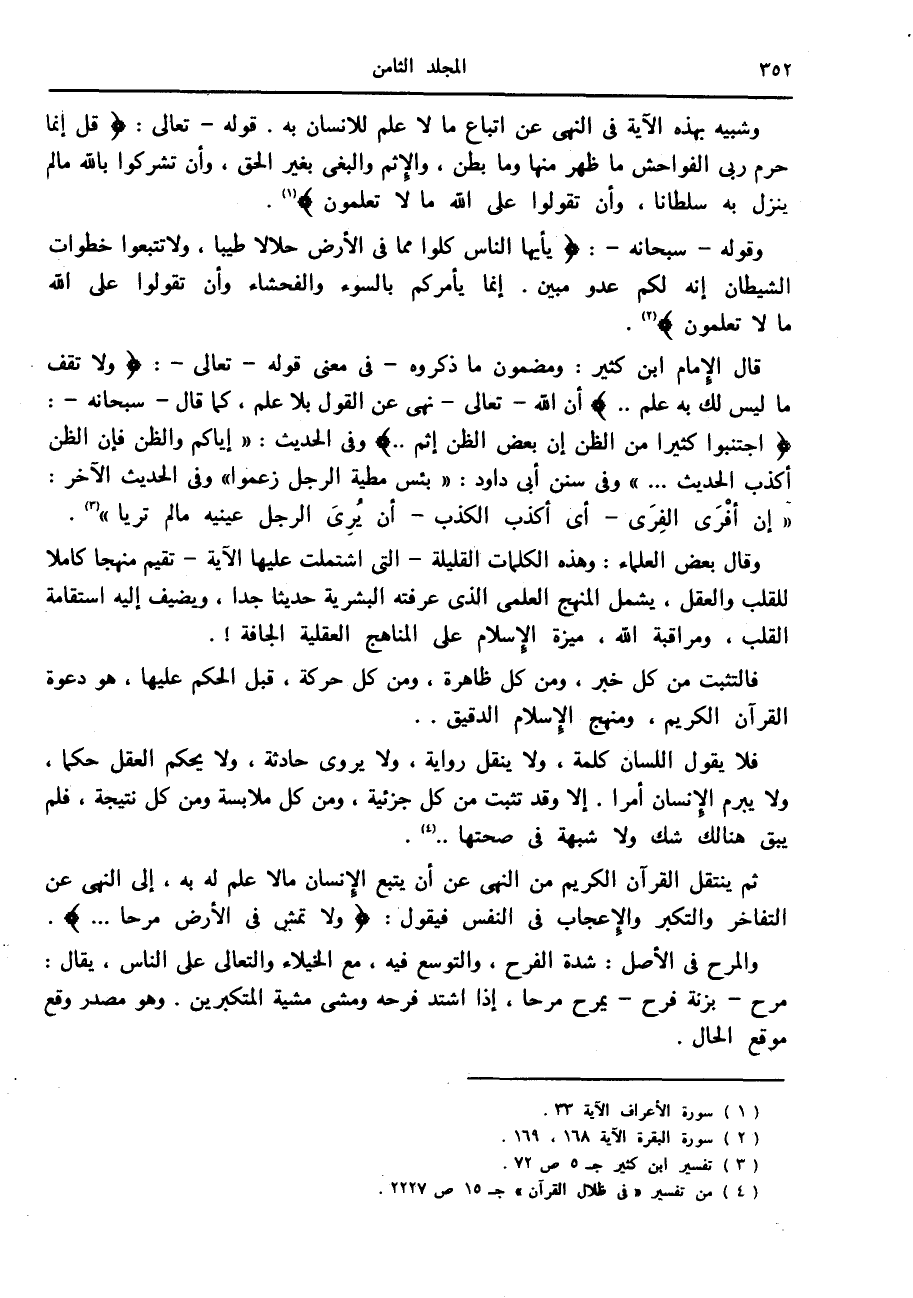 ٣٥٢ المجلد الثامن
وشبيه بهذه الآية فى النهى عن اتباع ما لا علم للانسان به . قوله – تعالى : ﴿ قل إنما
حرم ربى الفواحش ما ظهر منها وما بطن ، والإثم والبغى بغير الحق ، وأن تشركوا بالله مالم
ينزل به سلطانا ، وأن تقولوا على الله ما لا تعلمون ﴾(١) .
وقوله – سبحانه – : ﴿ يأيها الناس كلوا مما فى الأرض حلالا طيبا ، ولاتتبعوا خطوات
الشيطان إنه لكم عدو مبين . إنما يأمركم بالسوء والفحشاء وأن تقولوا على الله
ما لا تعلمون ﴾(٢) .
قال الإمام ابن كثير : ومضمون ما ذكروه – فى معنى قوله – تعالى – : ﴿ ولا تقف
ما ليس لك به علم .. ﴾ أن الله – تعالى – نهى عن القول بلا علم ، كما قال – سبحانه – :
﴿ اجتنبوا كثيرا من الظن إن بعض الظن إثم ..﴾ وفى الحديث : « إياكم والظن فإن الظن
أكذب الحديث ... » وفى سنن أبى داود : « بئس مطية الرجل زعموا» وفى الحديث الآخر :
« إن أفْرَى الفِرَى – أى أكذب الكذب – أن يُرِىَ الرجل عينيه مالم تريا »(٣) .
وقال بعض العلماء : وهذه الكلمات القليلة – التى اشتملت عليها الآية – تقيم منهجا كاملا
للقلب والعقل ، يشمل المنهج العلمى الذى عرفته البشرية حديثا جدا ، ويضيف إليه استقامة
القلب ، ومراقبة الله ، ميزة الإسلام على المناهج العقلية الجافة ! .
فالتثبت من كل خبر ، ومن كل ظاهرة ، ومن كل حركة ، قبل الحكم عليها ، هو دعوة
القرآن الكريم ، ومنهج الإسلام الدقيق . .
فلا يقول اللسان كلمة ، ولا ينقل رواية ، ولا يروى حادثة ، ولا يحكم العقل حكما ،
ولا يبرم الإنسان أمرا . إلا وقد تثبت من كل جزئية ، ومن كل ملابسة ومن كل نتيجة ، فلم
يبق هنالك شك ولا شبهة فى صحتها ..(٤) .
ثم ينتقل القرآن الكريم من النهى عن أن يتبع الإنسان مالا علم له به ، إلى النهى عن
التفاخر والتكبر والإعجاب فى النفس فيقول : ﴿ ولا تمش فى الأرض مرحا ... ﴾ .
والمرح فى الأصل : شدة الفرح ، والتوسع فيه ، مع الخيلاء والتعالى على الناس ، يقال :
مرح – بزنة فرح – يمرح مرحا ، إذا اشتد فرحه ومشى مشية المتكبرين . وهو مصدر وقع
موقع الحال .
( ١ ) سورة الأعراف الآية ٣٣ .
( ٢ ) سورة البقرة الآية ١٦٨ ، ١٦٩ .
( ٣ ) تفسير ابن كثير جـ ٥ ص ٧٢ .
( ٤ ) من تفسير « فى ظلال القرآن » جـ ١٥ ص ٢٢٢٧ .